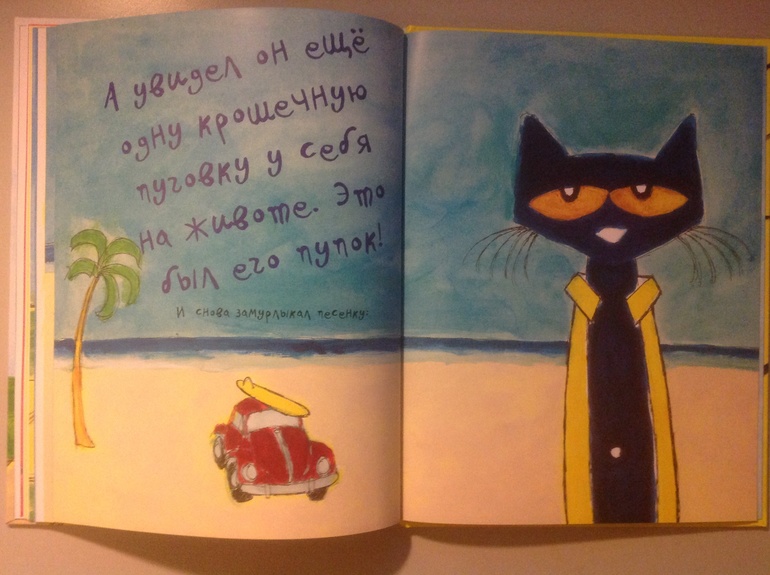 А увидел он ещё
одну крошечную
пуговку у себя
на животе. Это
был его пупок!
И снова замурлыкал песенку: